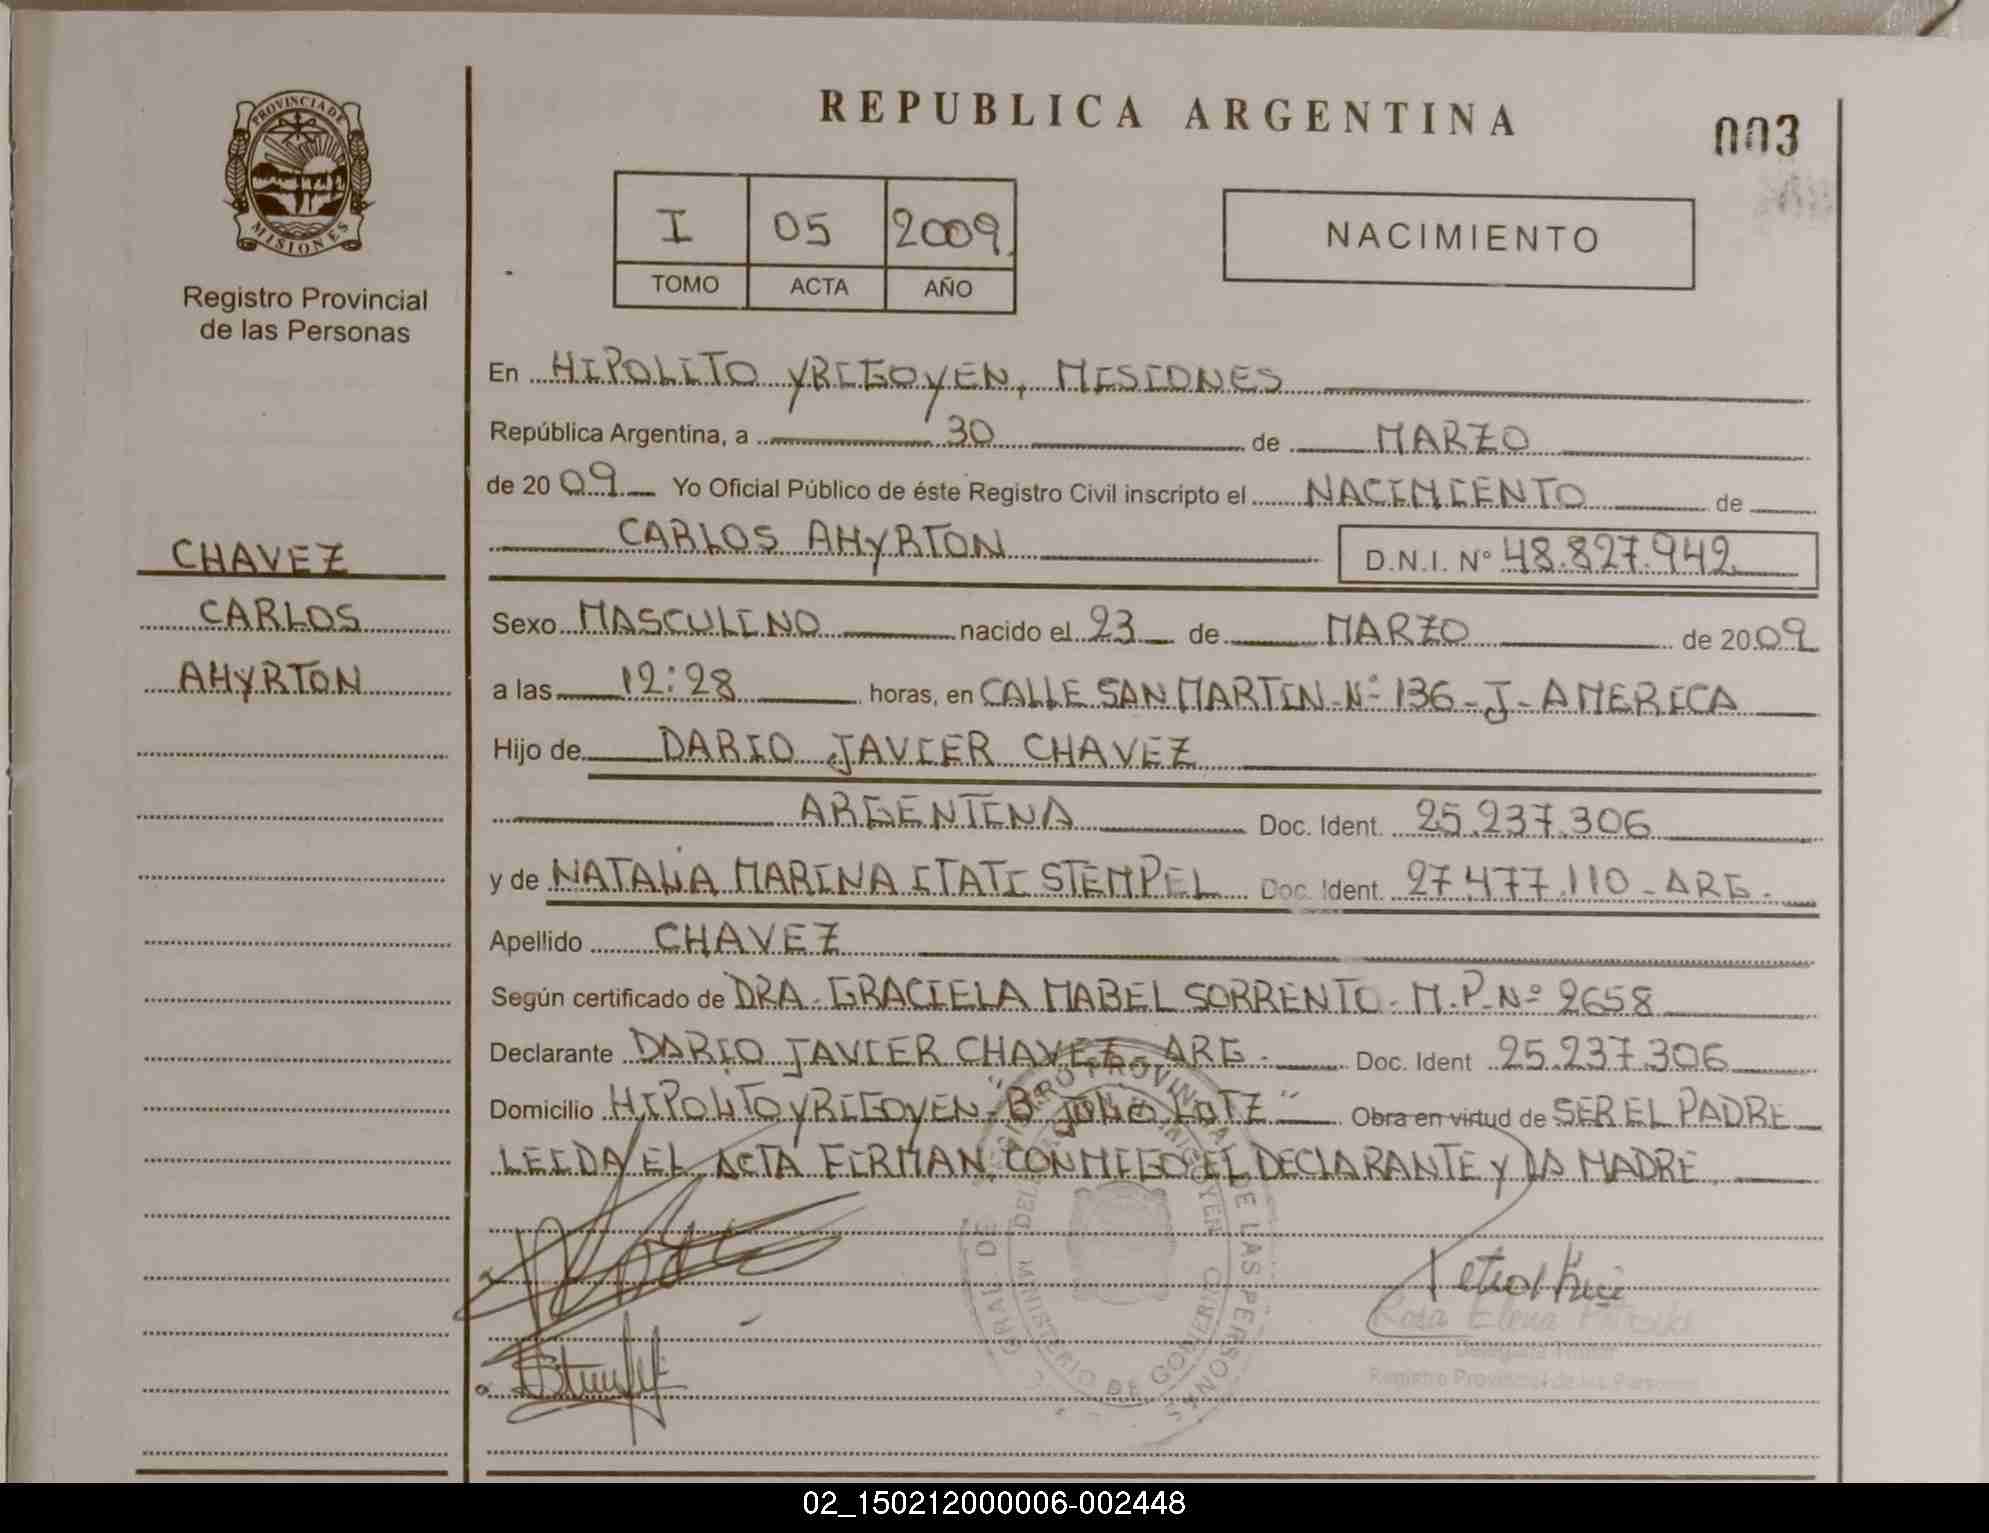 REPUBLICA ARGENTINA
003
PROVINCIA DE
MISIONES
Registro Provincial
de las Personas
I 05 2009
TOMO ACTA AÑO
NACIMIENTO
En HIPOLITO YRIGOYEN, MISIONES
República Argentina, a 30 de MARZO
de 2009 Yo Oficial Público de éste Registro Civil inscripto el NACIMIENTO de
CARLOS AHYRTON D.N.I. Nº 48.827.942
CHAVEZ
CARLOS
AHYRTON
Sexo MASCULINO nacido el 23 de MARZO de 2009
a las 12:28 horas, en CALLE SAN MARTIN - Nº 136 - J - AMERICA
Hijo de DARIO JAVIER CHAVEZ
ARGENTINA Doc. Ident. 25.237.306
y de NATALIA MARINA ITATI STEMPEL Doc. Ident. 27.477.110 - ARG.
Apellido CHAVEZ
Según certificado de DRA. GRACIELA MABEL SORRENTO - M.P. Nº 2658
Declarante DARIO JAVIER CHAVEZ - ARG. Doc. Ident 25.237.306
Domicilio HIPOLITO YRIGOYEN - Bº JULIO LOTZ" Obra en virtud de SER EL PADRE
LEIDA EL ACTA FIRMAN CONMIGO EL DECLARANTE Y LA MADRE
Rosa Elena
Registro Provincial de las Personas
MINISTERIO DE GOBIERNO
DE LAS PERSONAS
02_150212000006-002448